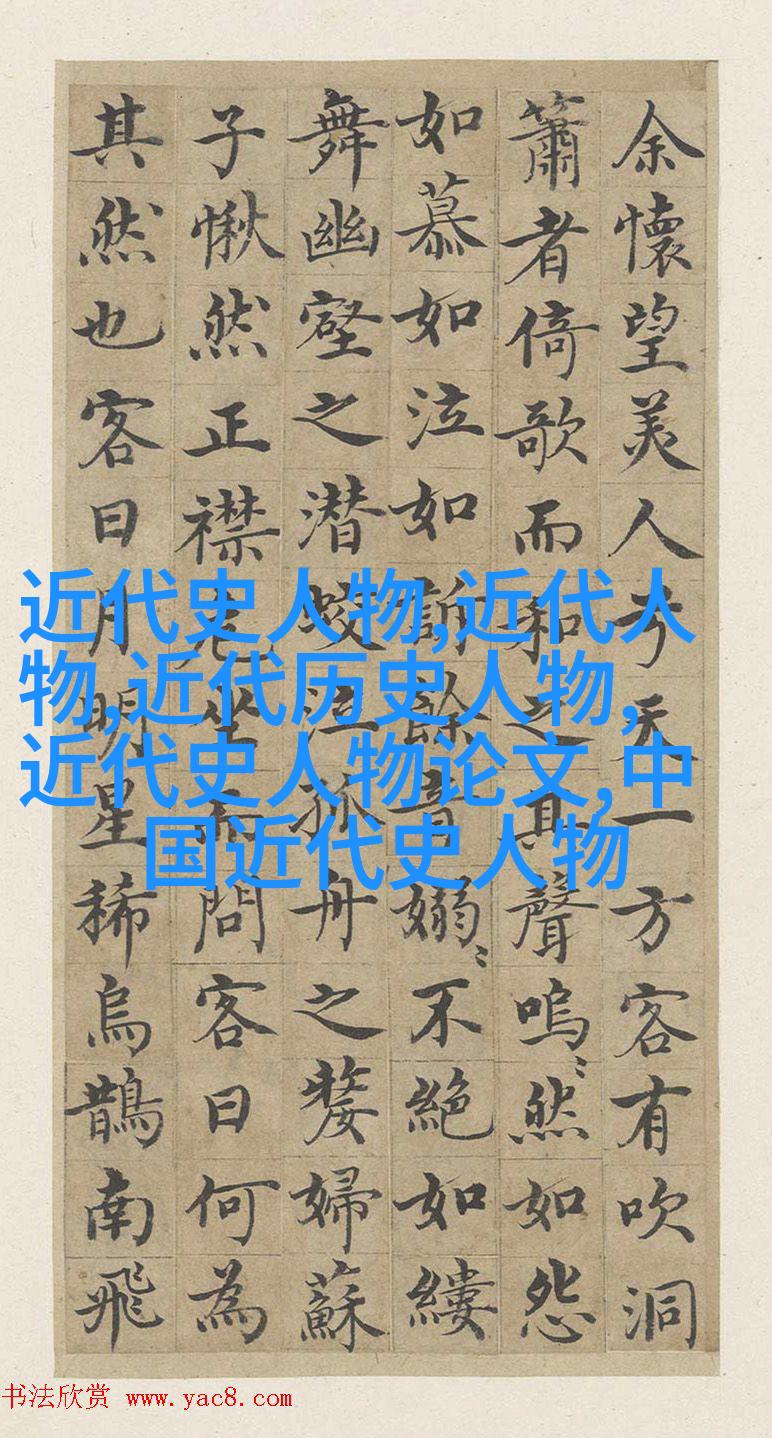 余懷望美人兮天一方客有吹洞
簫者倚歌而和之其聲嗚〻然如怨
如慕如泣如訴餘音嫋〻不絕如縷
舞幽壑之潜蛟泣孤舟之嫠婦蘇
子愀然正襟危坐而問客曰何為
其然也客曰月明星稀烏鵲南飛
近代史人物,近代人
物,近代历史人物,
近代史人物论文,中
国近代史人物
书法欣赏 www.yac8.com